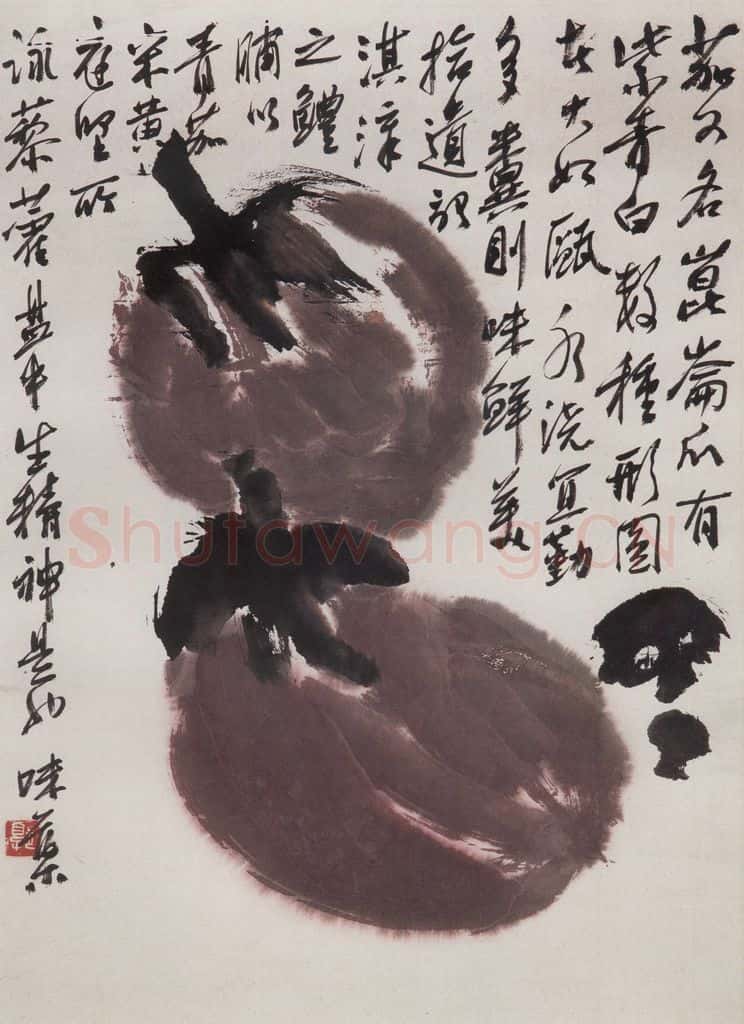 茄又名崑崙瓜有
紫青白數種形圓
大如甌水浇宜勤
多糞則味鮮美
拾遺記
淇漳
之鱧
脯以
青茄
宋黃
庭堅所
詠藜藿盤中生精神是也 味蕖
Shufawang.CN